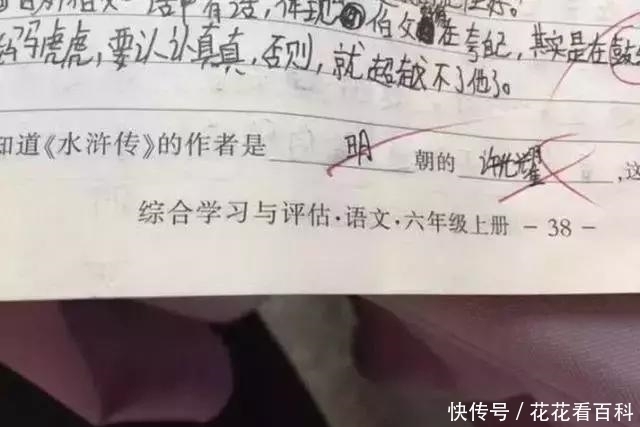 话中有话，伯父在夸自己，其实是在鼓
马马虎虎，要认认真真，否则，就超越不了他了。
知道《水浒传》的作者是 明 朝的 许光耀 ，这
综合学习与评估·语文·六年级上册 - 38 -
快传号 / 花花看百科